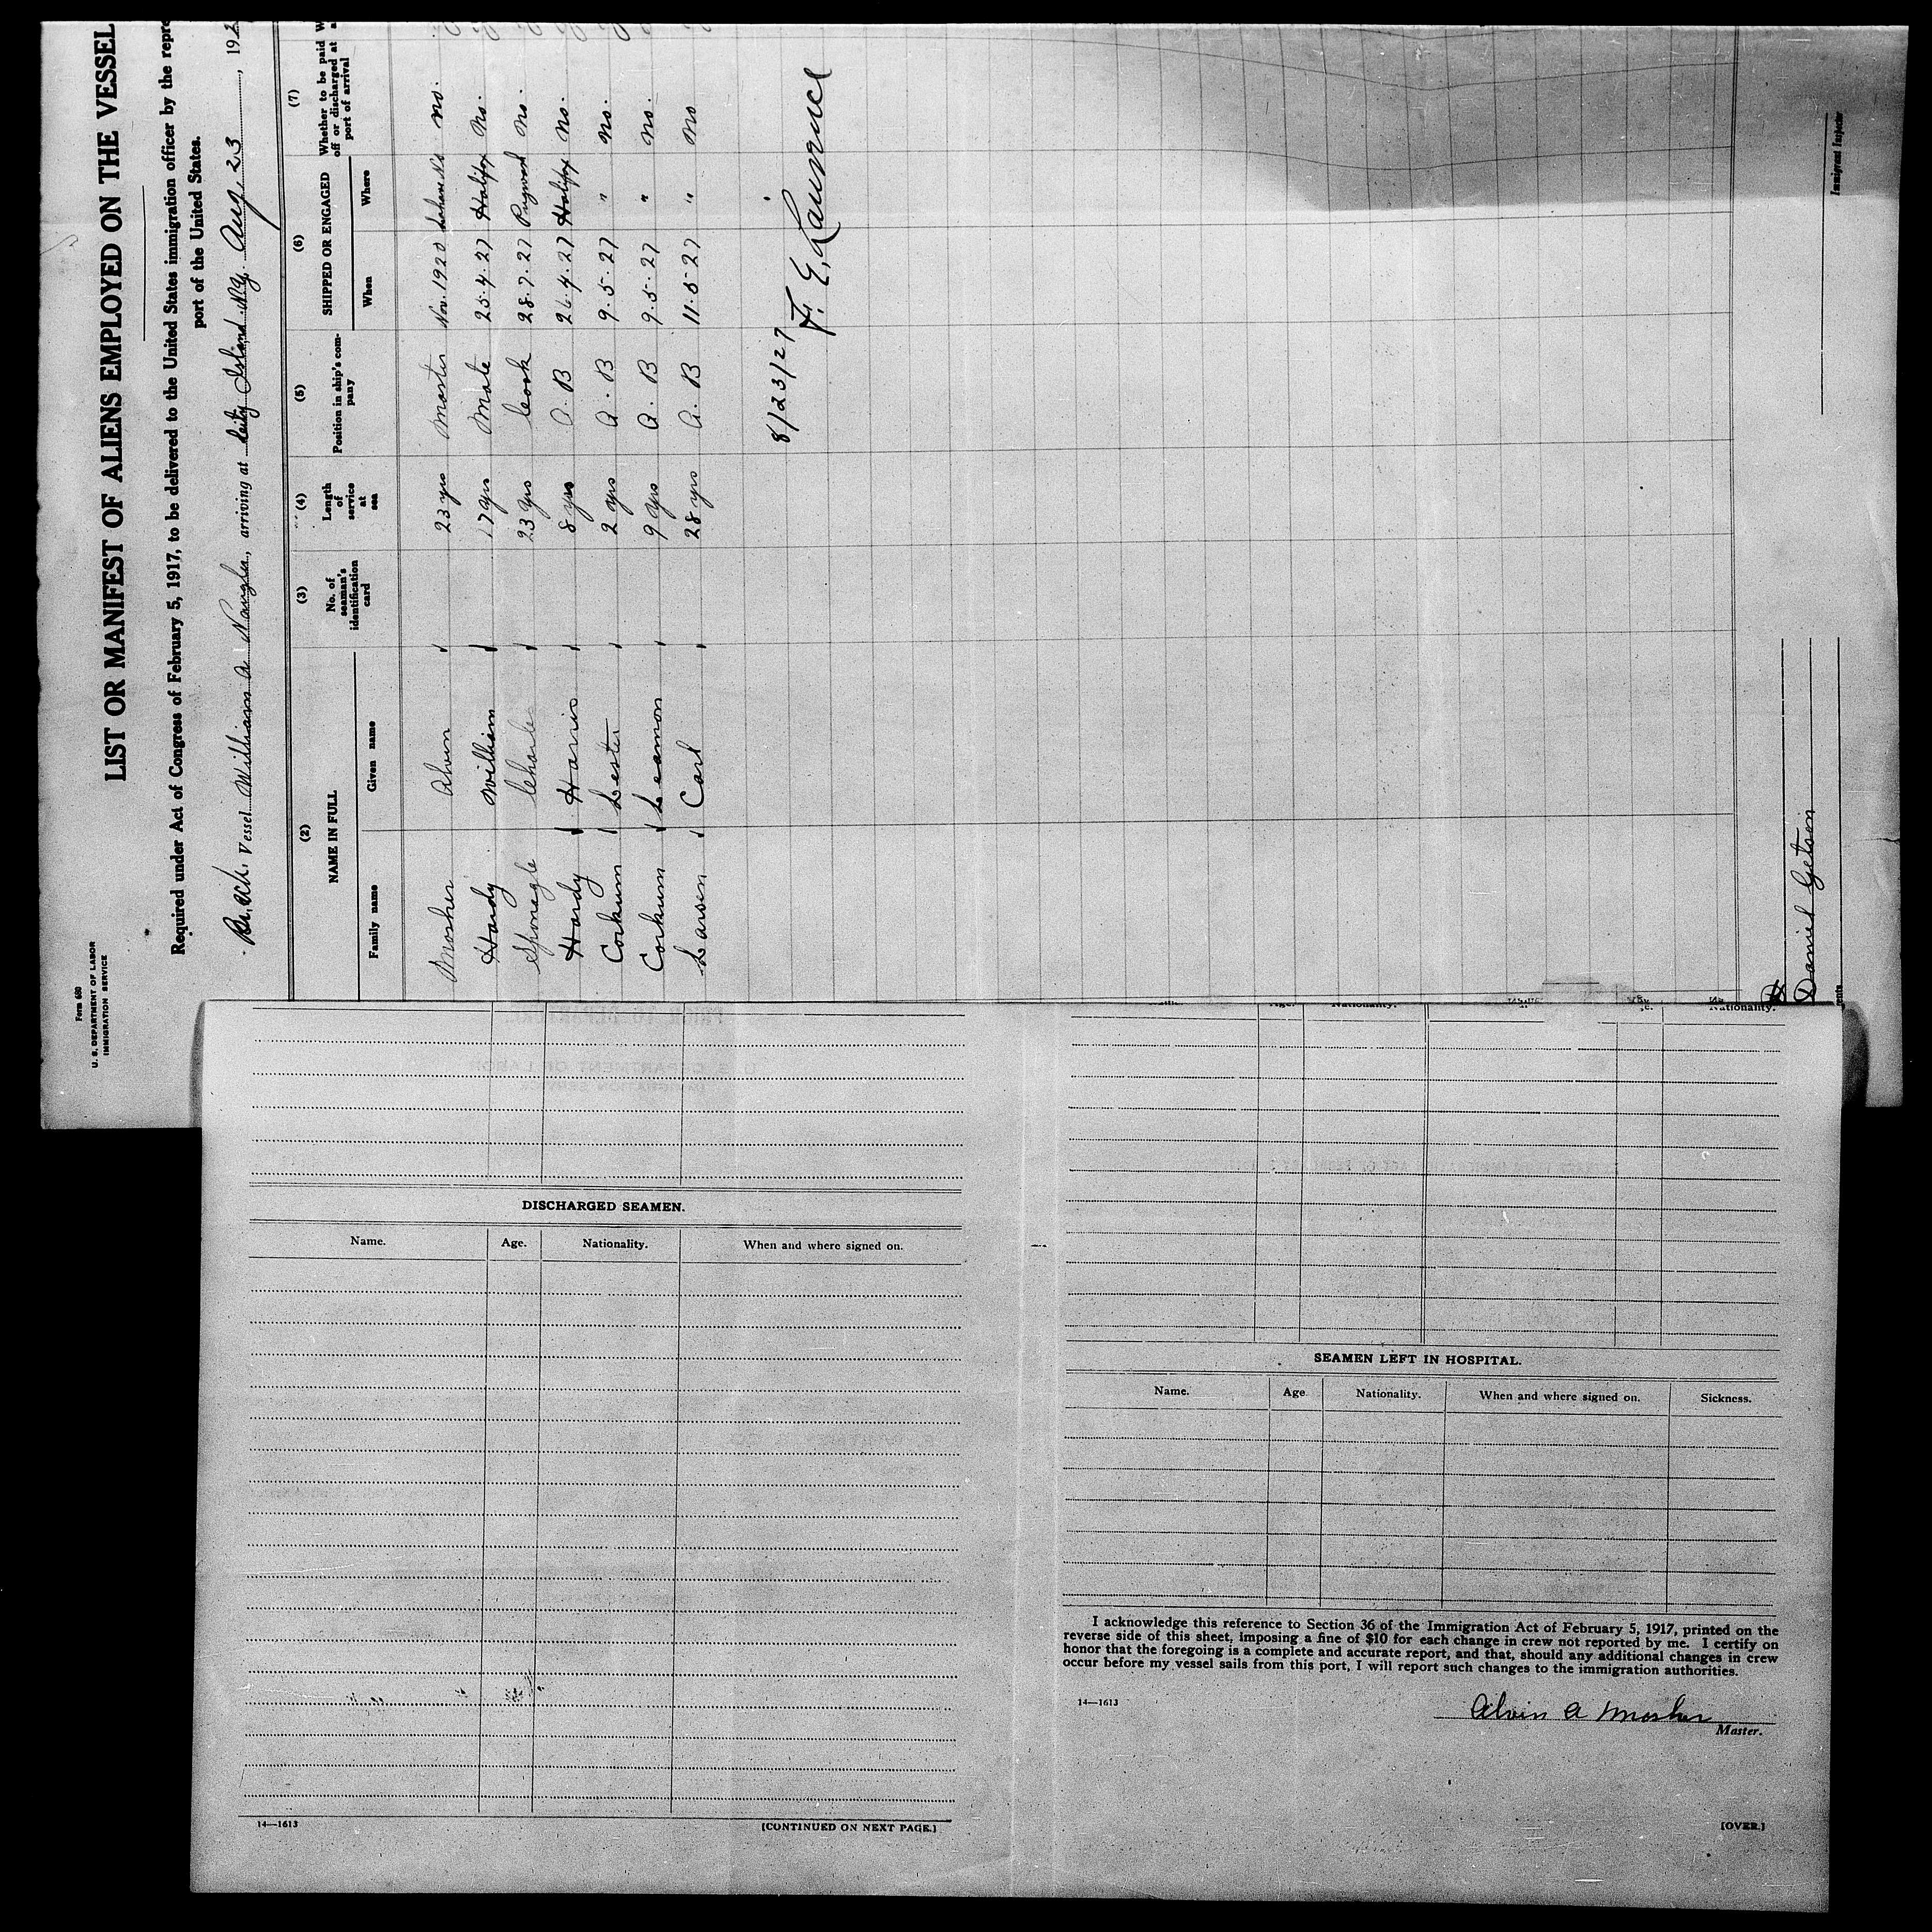 Form 680
U. S. DEPARTMENT OF LABOR
IMMIGRATION SERVICE
LIST OR MANIFEST OF ALIENS EMPLOYED ON THE VESSEL
Required under Act of Congress of February 5, 1917, to be delivered to the United States immigration officer by the repre
port of the United States.
Br. Sch. Vessel William A Naugler, arriving at City Island N.Y. Aug. 23, 192
(2) (3) (4) (5) (6) (7)
NAME IN FULL No. of seaman's identification card Length of service at sea Position in ship's company SHIPPED OR ENGAGED Whether to be paid off or discharged at port of arrival
Family name Given name When Where
Mosher Alvin 23 yrs Master Nov. 1920 no.
Hardy William 17 yrs Mate 25.4.27 Halifax No.
Sponagle Charles 23 yrs Cook 28.7.27 Pugwash No.
Hardy Harris 8 yrs A. B 26.4.27 Halifax No.
Corkum Lester 2 yrs A. B 9.5.27 " No.
Corkum Leamon 9 yrs A. B 9.5.27 " No.
Larsen Carl 28 yrs A. B 11.5.27 " No
8/23/27
F. E. Laurence
Daniel Getson
Immigrant Inspector
DISCHARGED SEAMEN.
Name. Age. Nationality. When and where signed on.
14—1613 [CONTINUED ON NEXT PAGE.]
Nationality.
SEAMEN LEFT IN HOSPITAL.
Name. Age Nationality. When and where signed on. Sickness.
I acknowledge this reference to Section 36 of the Immigration Act of February 5, 1917, printed on the
reverse side of this sheet, imposing a fine of $10 for each change in crew not reported by me. I certify on
honor that the foregoing is a complete and accurate report, and that, should any additional changes in crew
occur before my vessel sails from this port, I will report such changes to the immigration authorities.
14—1613
Alvin A Mosher
Master.
[OVER.]